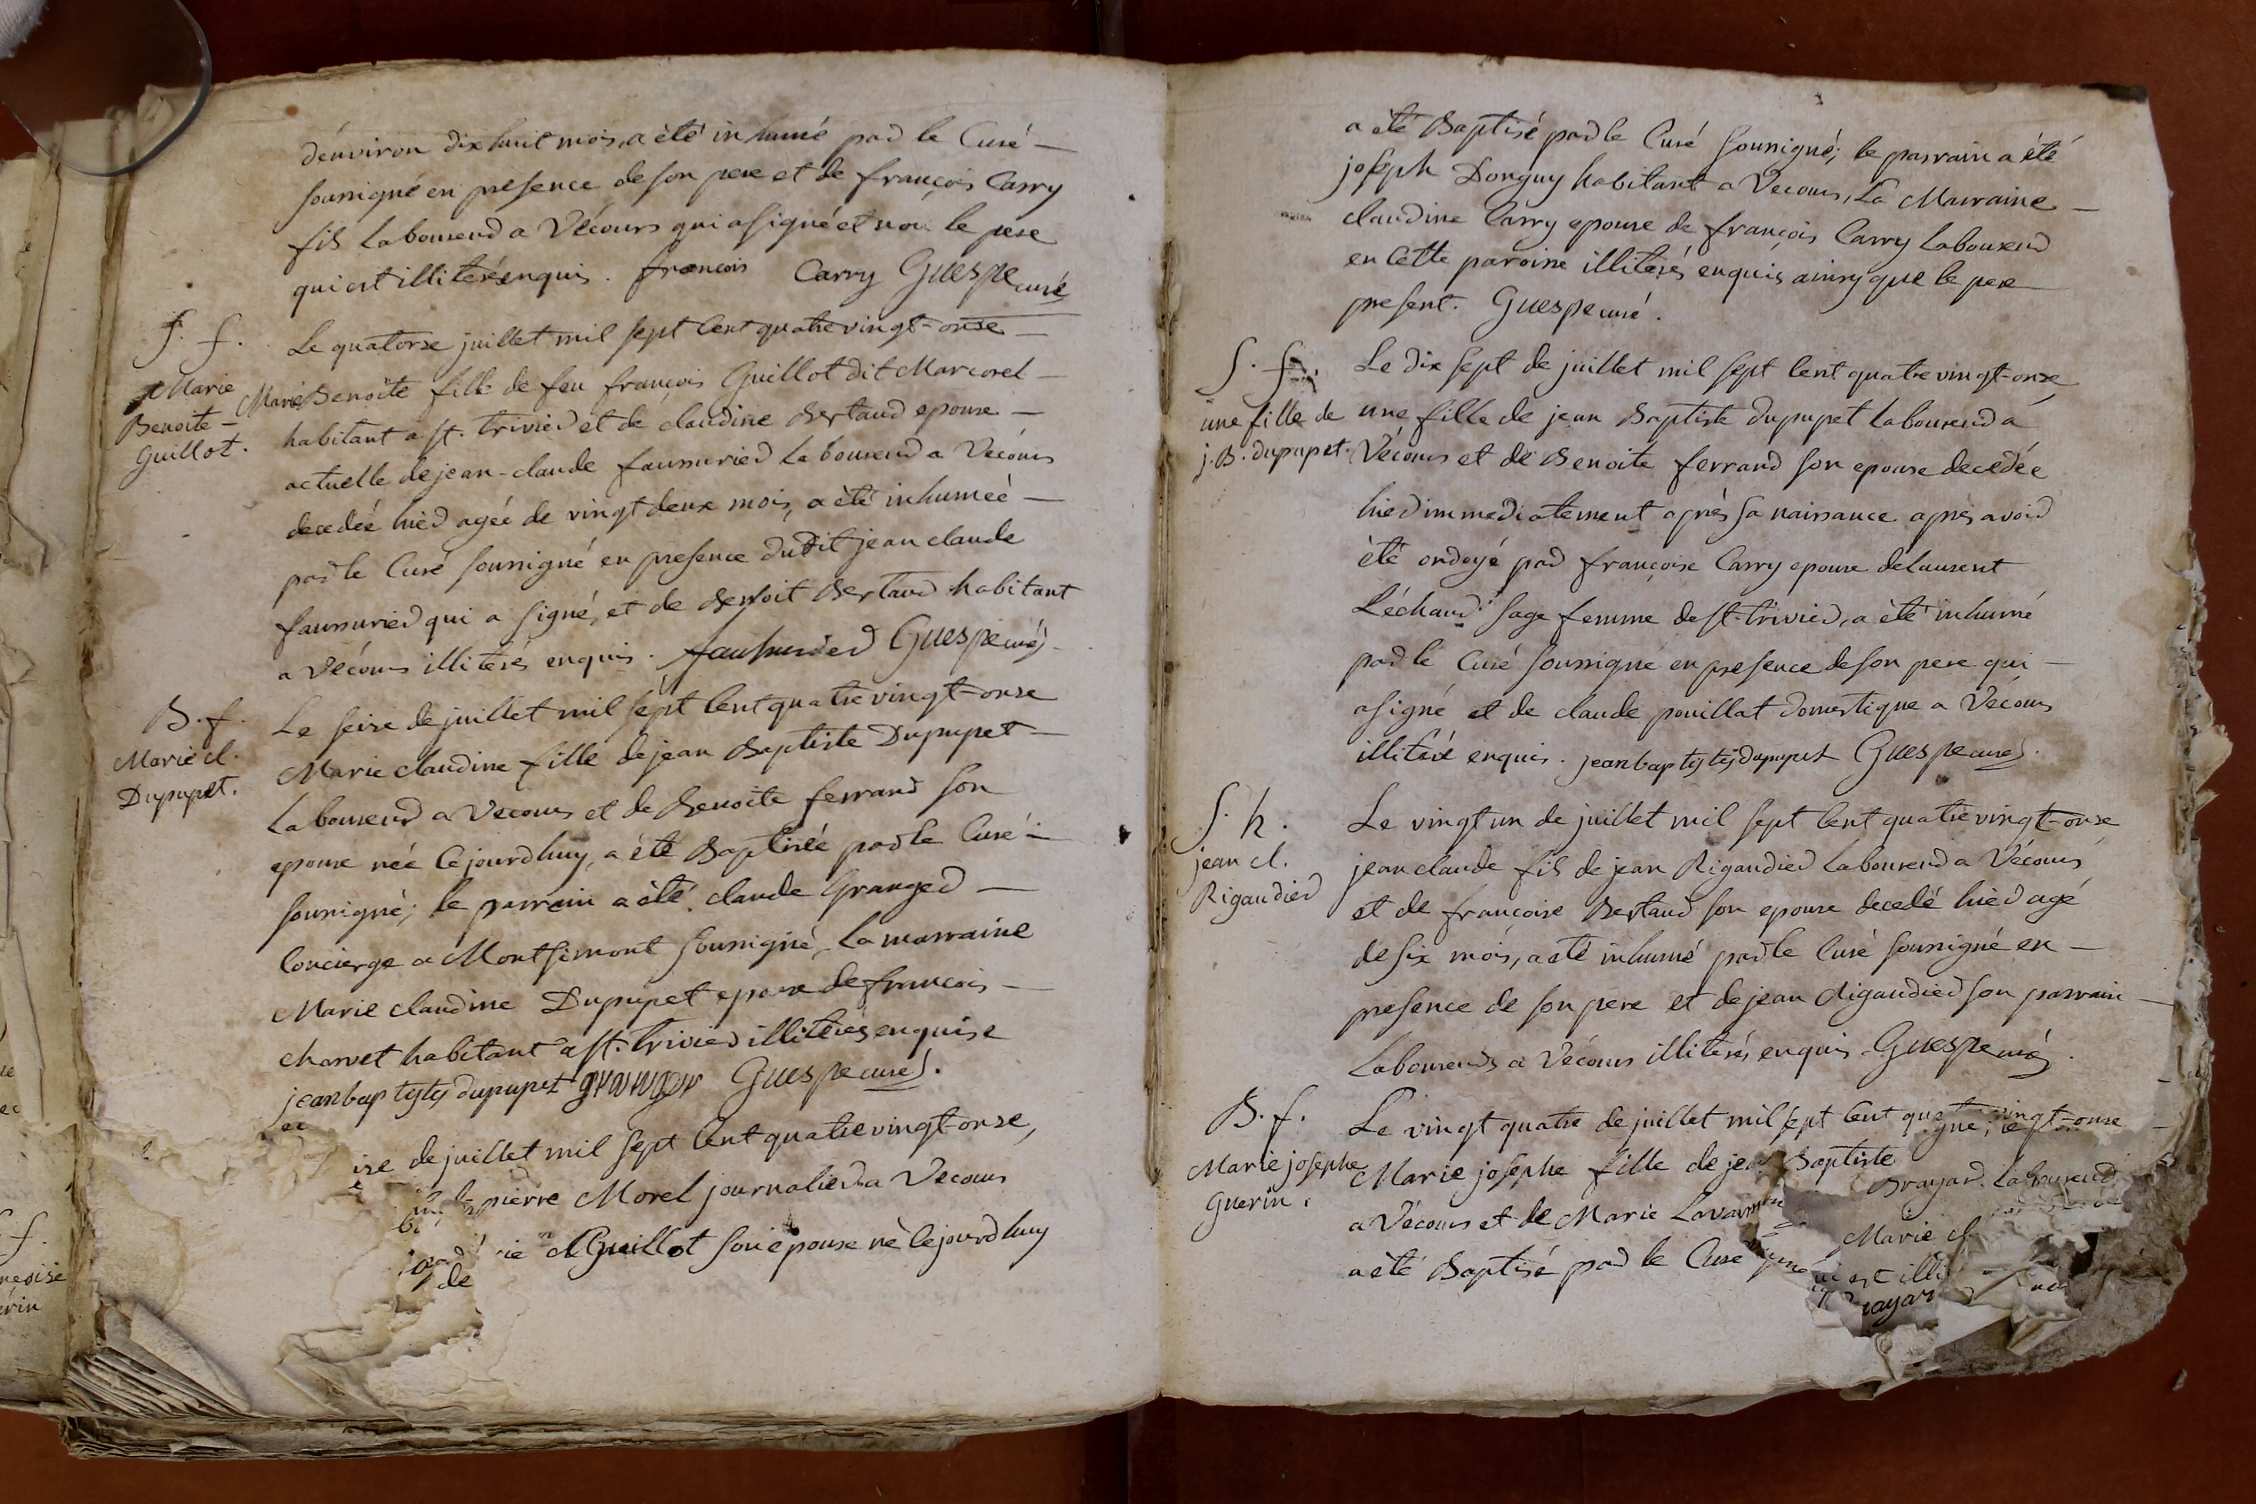 d'environ dix huit mois, a èté inhumé par le Curé
soussigné en presence de son pere et de françois Carry
fils laboureur a Vécours qui a signé et non le pere
qui est illiteré enquis. françois Carry Guespe curé
S. f.
Marie
Benoite
Guillot.
Le quatorse juillet mil sept cent quatre vingt-onse
Marie Benoite fille de feu françois Guillot dit Marcorel
habitant a st. trivier et de claudine Bertaud epouse
actuelle de jean-claude faussurier laboureur a Vécours
decedeé hier ageé de vingt deux mois, a èté inhumeé
par le Curé soussigné en presence dudit jean claude
faussurier qui a signé, et de Benoit Bertaud habitant
a Vécours illiterés enquis. Guespe curé
B. f.
Marie cl.
Dupupet.
Le seise de juillet mil sept cent quatre vingt-onse
Marie claudine fille de jean Baptiste Dupupet
laboureur a Vecours et de Benoite ferrand son
epouse née cejourdhuy, a été Baptisée par le Curé
soussigné; le parrain a èté claude Granger
concierge a Montsimont soussigné, la marraine
Marie claudine Dupupet epouse de françois
charvet habitant a st. trivier illiterés enquise
jean baptiste dupupet granger Guespe curé.
ise de juillet mil sept cent quatre vingt-onse,
pierre Morel journalier a Vecours
rie cl Guillot son epouse né cejourdhuy
de
a été Baptisé par le Curé soussigné; le parrain a été
joseph Donguy habitant a Vecours, La Marraine
claudine Carry epouse de françois Carry laboureur
en cette paroisse illiterés enquis ainsy que le pere
present. Guespe curé.
S. f.
une fille de
j. B. dupupet.
Le dix sept de juillet mil sept cent quatre vingt-onse
une fille de jean Baptiste dupupet laboureur a
Vécours et de Benoite ferrand son epouse decedée
hier immediatement après sa naissance après avoir
èté ondoyé par françoise Carry epouse de laurent
Léchaud sage femme de st-trivier, a èté inhumé
par le Curé soussigné en presence de son pere qui
a signé et de claude pouillat domestique a Vécours
illiteré enquis. jean baptiste dupupet Guespe curé.
S. h.
jean cl.
Rigaudier
Le vingt un de juillet mil sept cent quatre vingt-onse
jean claude fils de jean Rigaudier laboureur a Vécours
et de françoise Bertaud son epouse decedé hier agé
de six mois, a été inhumé par le Curé soussigné en
presence de son pere et de jean Rigaudier son parrain
laboureurs a Vécours illiterés enquis. Guespe curé.
B. f.
Marie josephe
Guerin.
Le vingt quatre de juillet mil sept cent quatre vingt-onse
Marie josephe fille de jean Baptiste
Brayard laboureur
a Vécours et de Marie
Marie cl
a èté Baptisé par le Curé
est illi